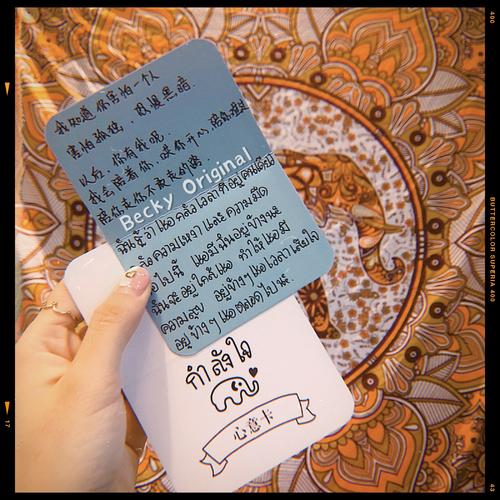 我知道你害怕一个人
害怕孤独,我漫黑暗.
以后,你有我呢.
我会陪着你,逗你开心,陪你渡过
陪你去你不敢去的路
Becky Original
ฉันรู้ว่าเธอกลัวเวลาที่อยู่คนเดียว
กลัวความเหงาและความมืด
ต่อไปนี้ เธอมีฉันอยู่ข้างนะ
ฉันจะอยู่ใกล้เธอ ทำให้เธอมี
ความสุข อยู่ข้างๆเธอเวลาเสียใจ
อยู่ข้างๆเธอตลอดไปนะ.
กำลังใจ
心意卡
BUTTERCOLOR SUPERIA 400
400
17
43